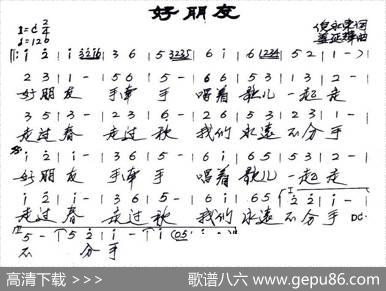 好朋友
1=C 2/4
♩=126
i 2̇ | i | 3̇2̇16 | 3 6 | 5 3235 | 6 i | 6 1234 | 5 2 | 1 - |
2 3 | 1 - | 5 6 | 5 - | 6 6 | 5 3 | 1 3 | 2 - |
好朋友 手牵手 唱着歌儿一起走
3 5 | 3 - | 2 3 | 2 - | 6 6 | 5 3 | 2 3 | 1 - |
走过春 走过秋 我们永远不分手
i 2̇ | i - | 3 6 | 5 - | 6 i | 6 5 | 5 3 | 2 - |
好朋友 手牵手 唱着歌儿一起走
i 2̇ | i - | 3 6 | 5 - | 6 i | 6 5 | 5 2 | 1 - |
走过春 走过秋 我们永远不分手 D.C.
5 - | 5 2̇ | i - | i - | i (05 |
不 分手
高清下载 >>>
歌谱八六 www.gepu86.com